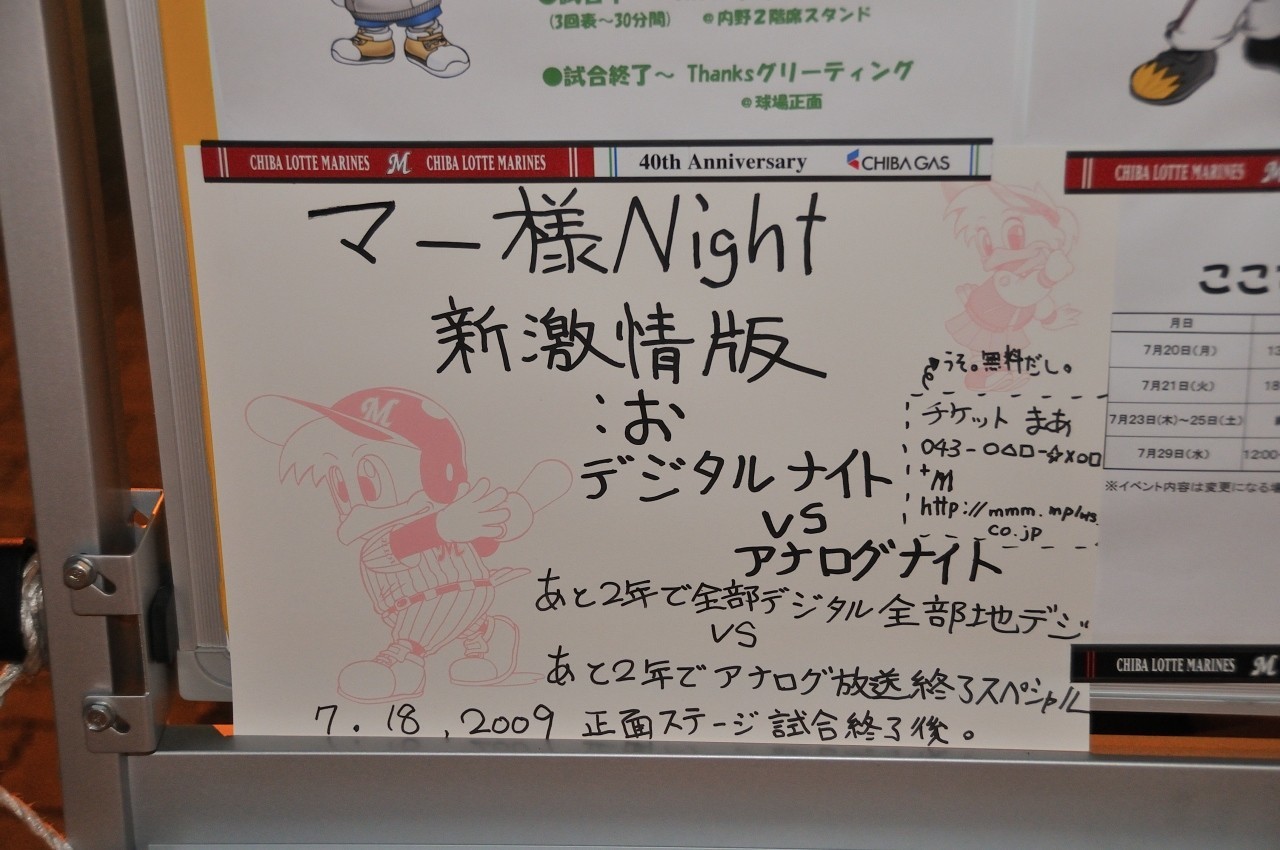 (3回表〜30分間) @内野2階席スタンド
●試合終了〜 Thanksグリーティング
@球場正面
CHIBA LOTTE MARINES M CHIBA LOTTE MARINES 40th Anniversary CHIBA GAS
マー様Night
新激情版
:お
デジタルナイト
VS
アナログナイト
あと2年で全部デジタル全部地デジ
VS
あと2年でアナログ放送終了スペシャル
7.18,2009 正面ステージ試合終了後。
うそ。無料だし。
チケット まあ
043-○△□-☆×○□
+M
http://mmm.mplus.
co.jp
M
CHIBA LOTTE MARINES
ここ
月日
7月20日(月) 13
7月21日(火) 18
7月23日(木)〜25日(土)
7月29日(水) 12:00
※イベント内容は変更になる場
CHIBA LOTTE MARINES M